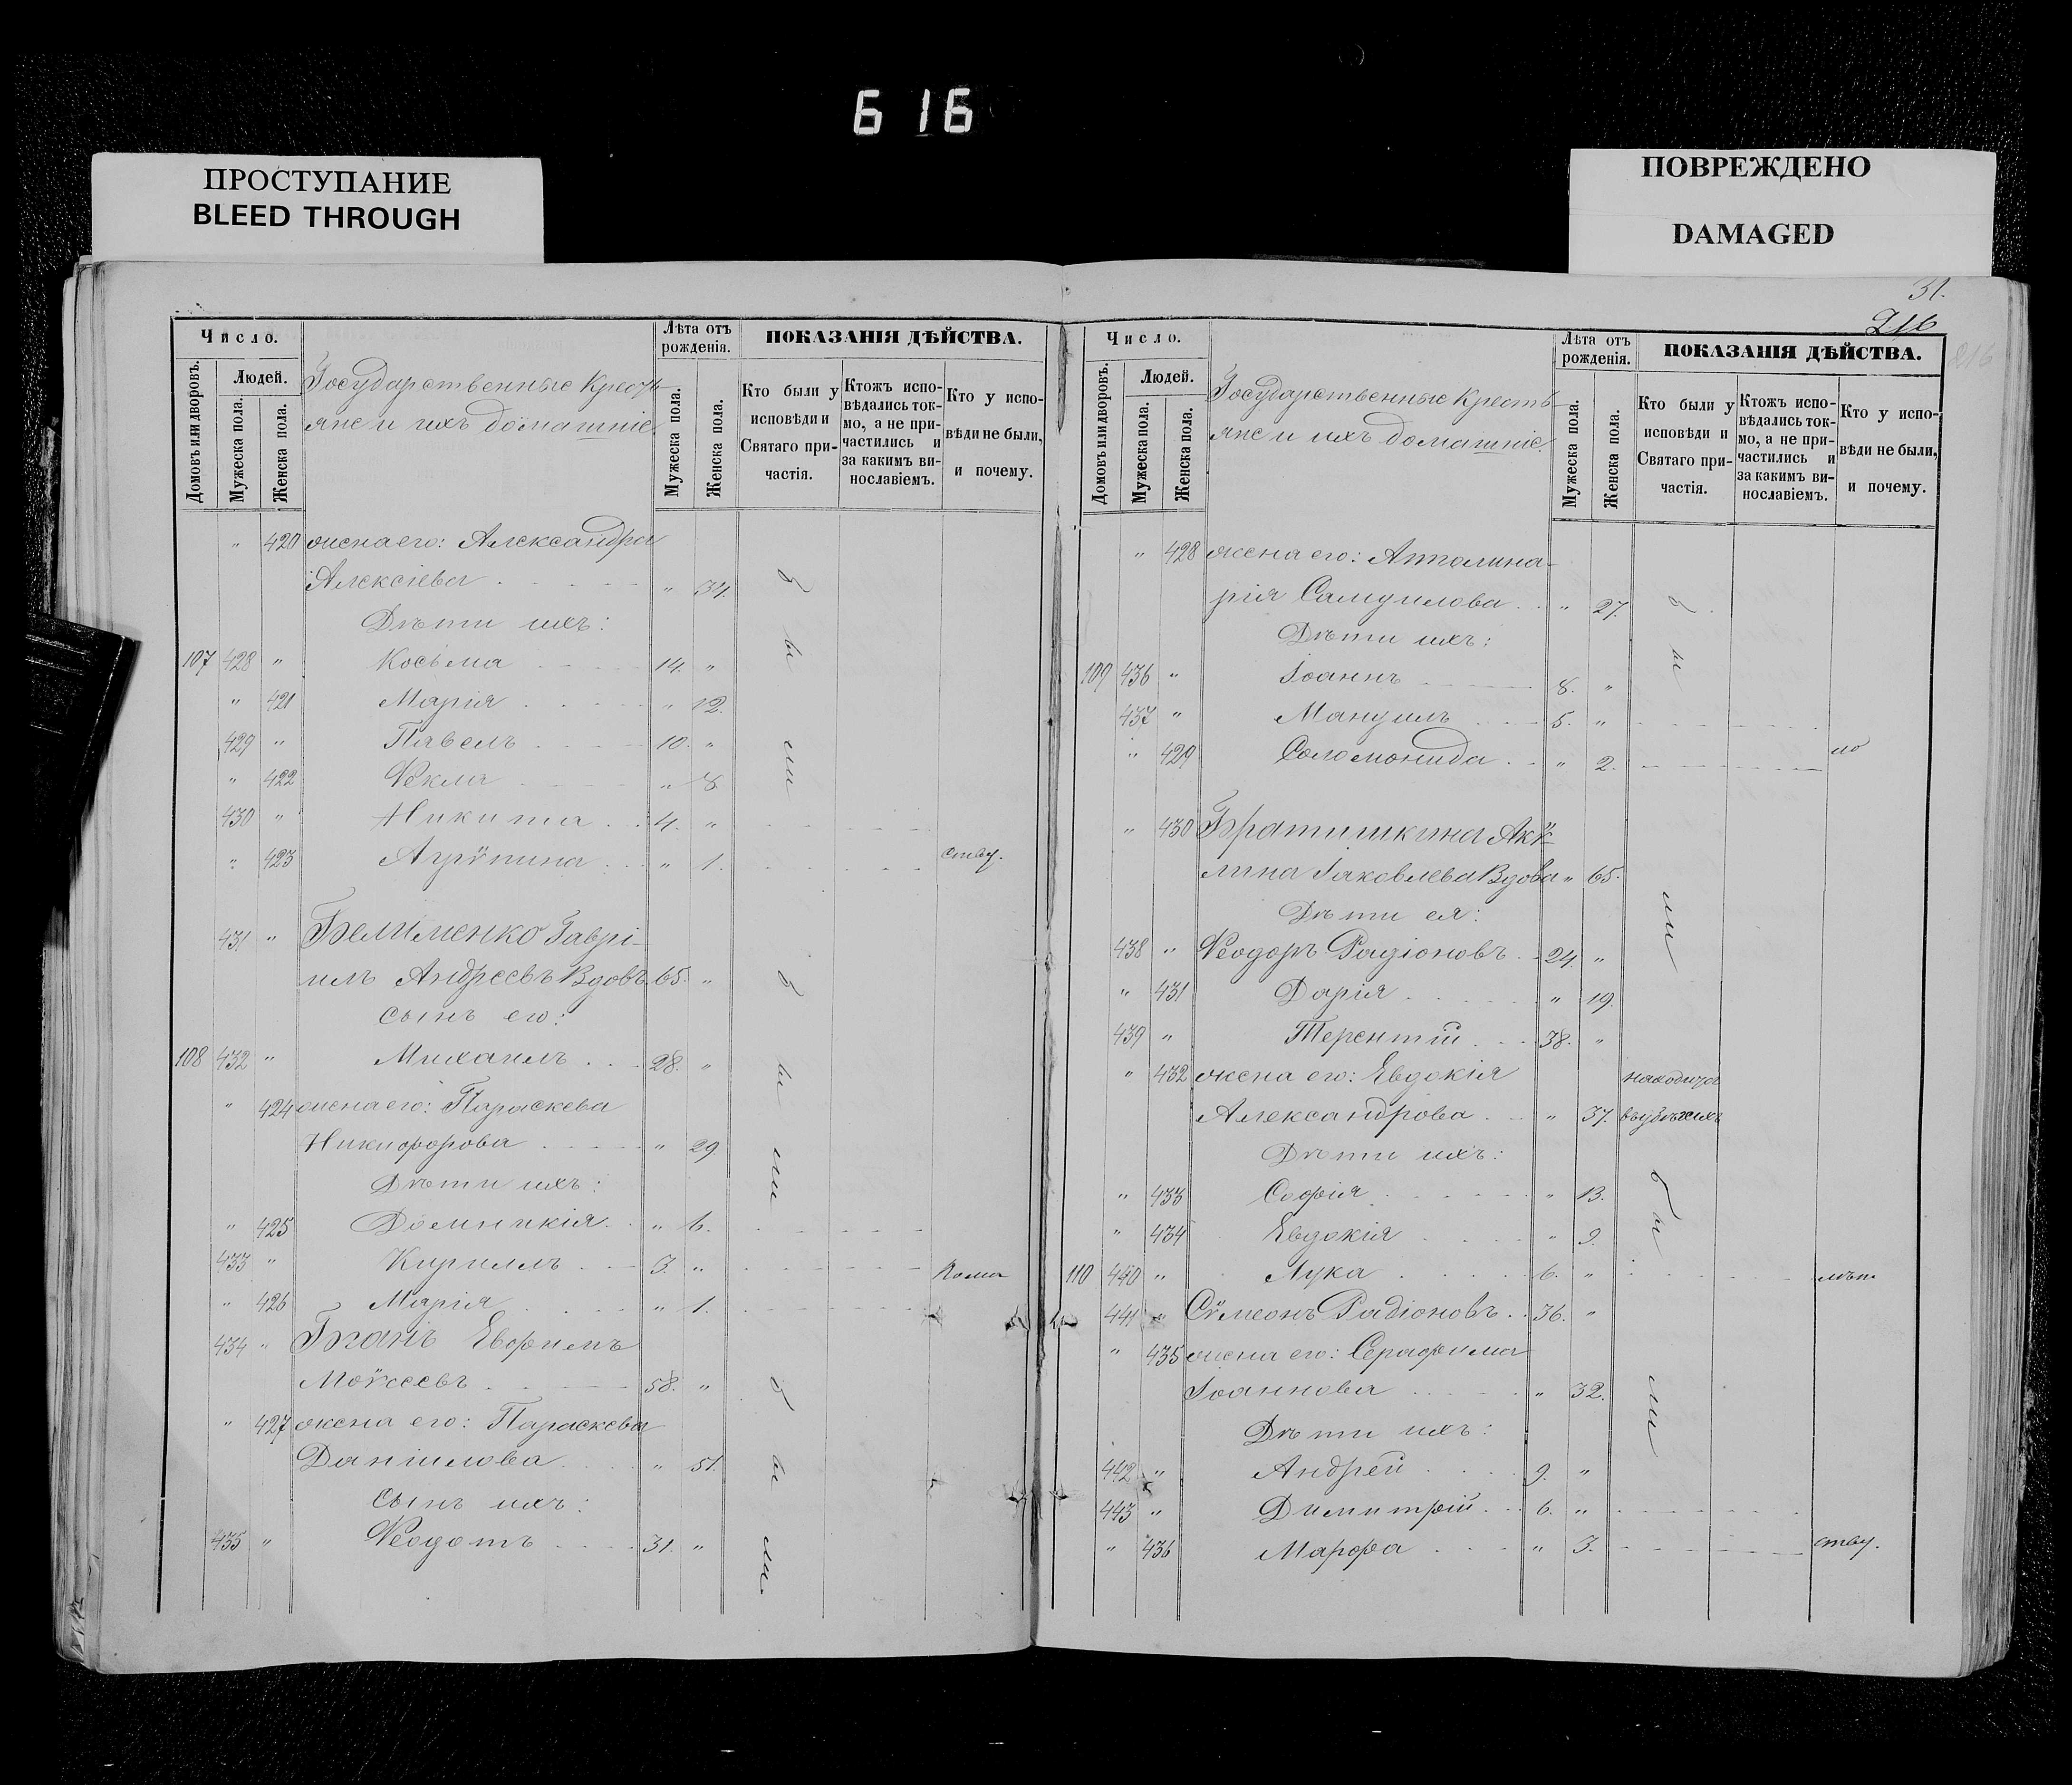 6 16
ПРОСТУПАНИЕ
BLEED THROUGH
ПОВРЕЖДЕНО
DAMAGED
Число.
Людей.
Домовъ или дворовъ.
Мужеска пола.
Женска пола.
Государственные Кресть-
яне и ихъ домашніе.
Лѣта отъ
рожденія.
Мужеска пола.
Женска пола.
ПОКАЗАНІЯ ДѢЙСТВА.
Кто были у
исповѣди и
Святаго при-
частія.
Ктожъ испо-
вѣдались ток-
мо, а не при-
частились и
за какимъ ви-
нославіемъ.
Кто у испо-
вѣди не были,
и почему.
" 420 жена его: Александра
Алексіева " 34.
Дѣти ихъ:
107 428 " Косьма 14. "
" 421 Марія " 12.
429 " Павелъ 10. "
" 422 Ѳекла " 8
430 " Никита 4. "
" 423 Агрѵпина " 1.
431 " Гаврі-
илъ Андреевъ Вдовъ 65. "
сынъ его:
108 432 " Михаилъ 28. "
" 424 жена его: Параскева
Никифорова " 29.
Дѣти ихъ:
" 425 Домникія " 6.
433 " Кириллъ 3. "
" 426 Марія " 1.
434 " Евфимъ
Моѵсеевъ 58. "
" 427 жена его: Параскева
Даніилова " 51.
сынъ ихъ:
435 " Ѳеодотъ 31. "
б
ы
ли
б
ы
ли
б
ы
ли
31.
216
Число.
Людей.
Домовъ или дворовъ.
Мужеска пола.
Женска пола.
Государственные Кресть-
яне и ихъ домашніе.
Лѣта отъ
рожденія.
Мужеска пола.
Женска пола.
ПОКАЗАНІЯ ДѢЙСТВА.
Кто были у
исповѣди и
Святаго при-
частія.
Ктожъ испо-
вѣдались ток-
мо, а не при-
частились и
за какимъ ви-
нославіемъ.
Кто у испо-
вѣди не были,
и почему.
" 428 жена его: Апполина-
рія Самуилова " 27.
Дѣти ихъ:
109 436 " Іоаннъ 8. "
437 " Мануилъ 5. "
" 429 Соломонида " 2. по
" 430 Братишкина Акѵ-
лина Іаковлева Вдова " 65.
Дѣти ея:
438 " Ѳеодоръ Радіоновъ 24. "
" 431 Дарія " 19.
439 " Терентій 38. "
" 432 жена его: Евдокія
Александрова " 37.
Дѣти ихъ:
" 433 Софія " 13.
" 434 Евдокія " 9.
110 440 " Лука 6. " лѣт
441 " Сѵмеонъ Радіоновъ 36. "
" 435 жена его: Серафима
Іоаннова " 32.
Дѣти ихъ:
442 " Андрей 9. "
443 " Димитрій 6. "
" 436 Марфа " 3. ству.
б
ы
ли
б
ы
ли